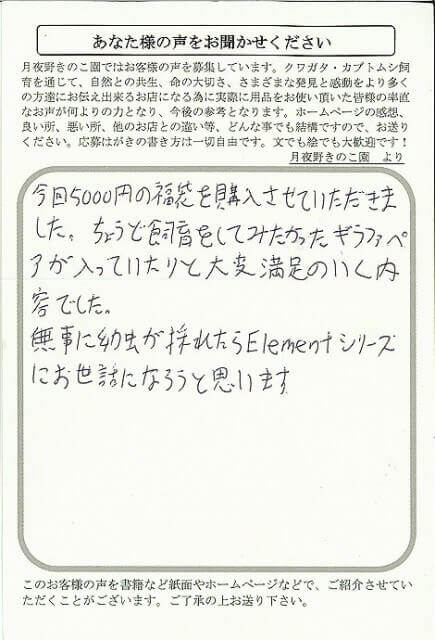 あなた様の声をお聞かせください
月夜野きのこ園ではお客様の声を募集しています。クワガタ・カブトムシ飼
育を通じて、自然との共生、命の大切さ、さまざまな発見と感動をより多く
の方達にお伝え出来るお店になる為に実際に用品をお使い頂いた皆様の率直
なお声が何よりの力となり、今後の参考となります。ホームページの感想、
良い所、悪い所、他のお店との違い等、どんな事でも結構ですので、お送り
ください。応募はがきの書き方は一切自由です。文でも絵でも大歓迎です！
月夜野きのこ園　より
今回5000円の福袋を購入させていただきま
した。ちょうど飼育をしてみたかったギラファペ
アが入っていたりと大変満足のいく内
容でした。
無事に幼虫が採れたらElementシリーズ
にお世話になろうと思います
このお客様の声を書籍など紙面やホームページなどで、ご紹介させてい
ただくことがございます。ご了承の上お送り下さい。